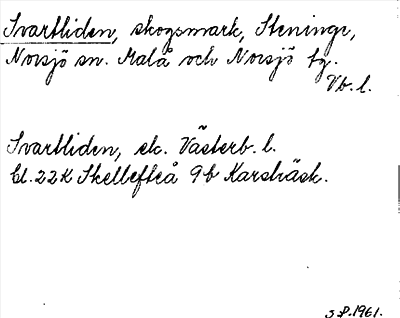 Svartliden, skogsmark, Steningr,
Norsjö sn. Malå och Norsjö tg.
Vb. l.
Svartliden, ek. Västerb. l.
bl. 22K Skellefteå 9b Karsbäck.
S.P. 1961.